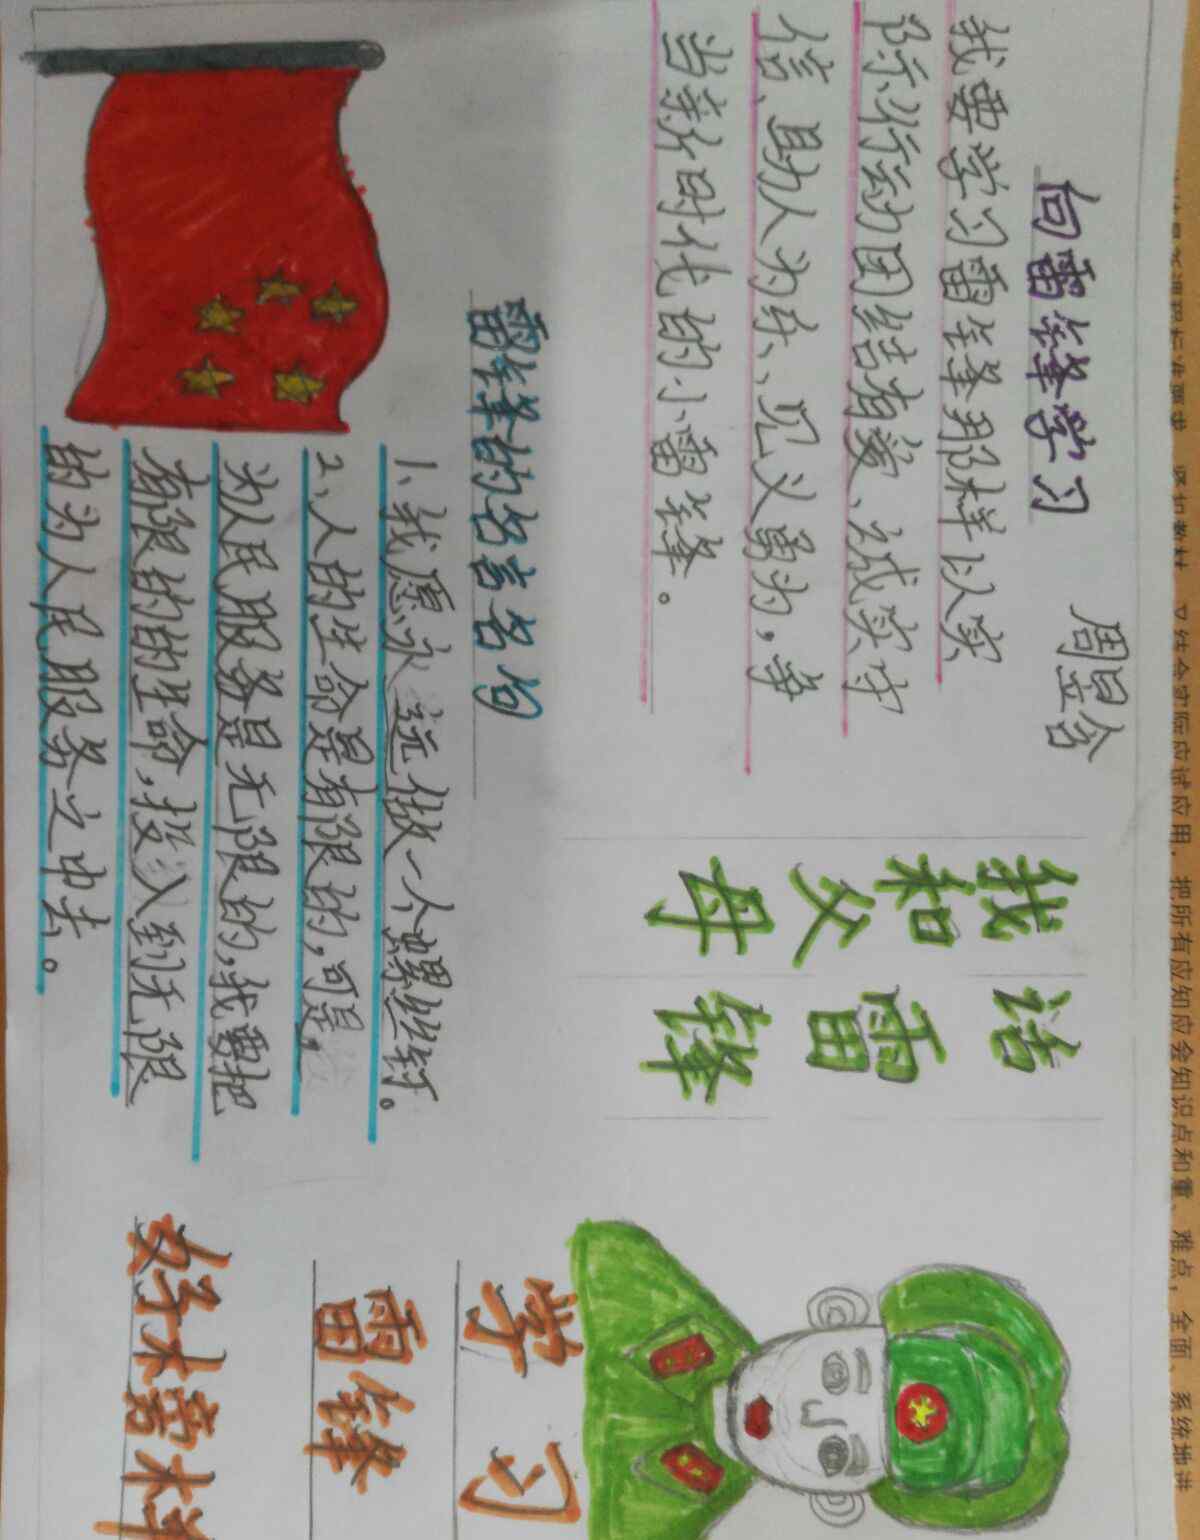 紧扣教材，又结合实际应试应用，把所有应知应会知识点和重、难点，全面、系统地讲
向雷锋学习
周昱含
我要学习雷锋那样以实
际行动团结有爱、诚实守
信、助人为乐、见义勇为，争
当新时代的小雷锋。
我和父母
话雷锋
雷锋的名言名句
1、我愿永远做一个螺丝钉。
2、人的生命是有限的，可是，
为人民服务是无限的，我要把
有限的的生命，投入到无限
的为人民服务之中去。
学习
雷锋
好榜样